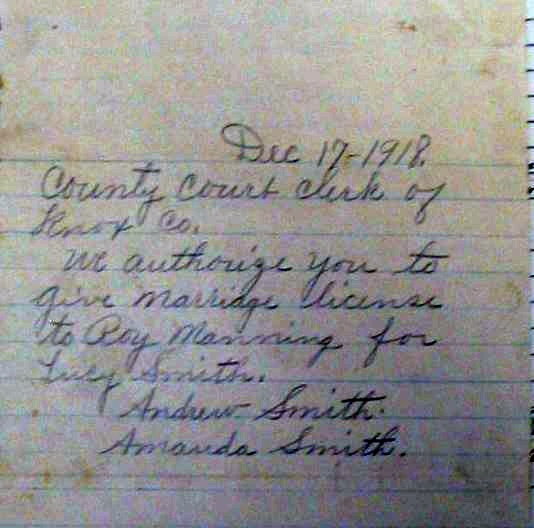 Dec 17-1918.
County Court clerk of
Knox Co.
We authorize you to
give marriage license
to Roy Manning for
Lucy Smith.
Andrew Smith.
Amanda Smith.